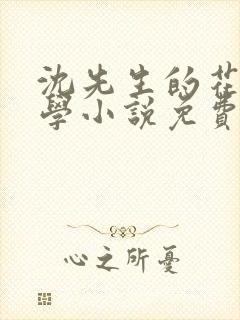 沈先生的花
學小說免費
心之所憂